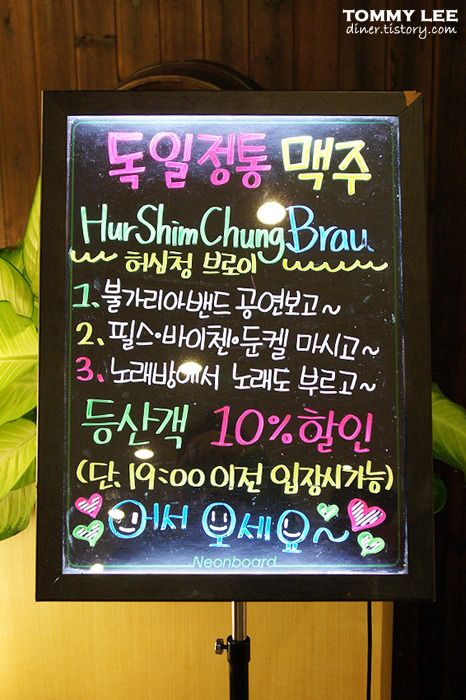 TOMMY LEE
diner.tistory.com
독일정통 맥주
HurShimChung Brau
허심청 브로이
1. 불가리아밴드 공연보고~
2. 필스·바이첸·둔켈 마시고~
3. 노래방에서 노래도 부르고~
등산객 10% 할인
(단, 19:00 이전 입장시가능)
어서 오세요~
Neonboard